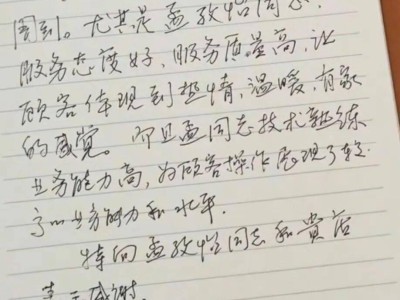 周到。尤其是孟孜怡同志,
服务态度好,服务质量高,让
顾客体现到热情,温暖,有家
的感觉。而且孟同志技术熟练
业务能力高,为顾客操作展现了
业务能力和水平.
特向孟孜怡同志和贵店
表示感谢.